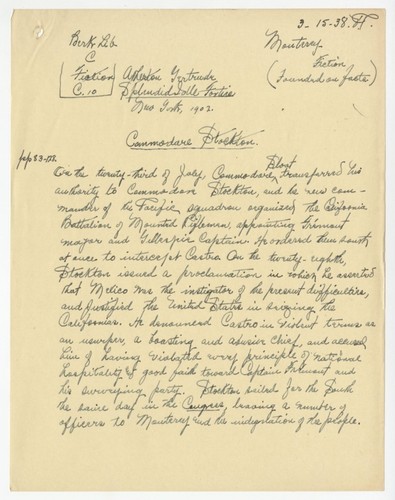 3-15-38.
Berk. Lib.
C
Fiction
C. 10
Atherton Gertrude
Splendid Idle Forties
New York, 1902.
Monterey
Fiction
(Founded on facts)
Commodore Stockton.
pp 83-
On the twenty-third of July, Commodore Sloat transferred his
authority to Commodore Stockton, and the new com-
mander of the Pacific squadron organized the California
Battalion of Mounted Riflemen, appointing Fremont
major and Gillespie Captain. He ordered them south
at once to intercept Castro. On the twenty-eighth,
Stockton issued a proclamation in which he asserted
that Mexico was the instigator of the present difficulties,
and justified the United States in seizing the
Californias. He denounced Castro in violent terms as
an usurper, a boasting and abusive chief, and accused
him of having violated every principle of national
hospitality & good faith toward Captain Fremont and
his surveying party. Stockton sailed for the South
the same day in the Congress, leaving a number of
officers to Monterey and the indignation of the people.